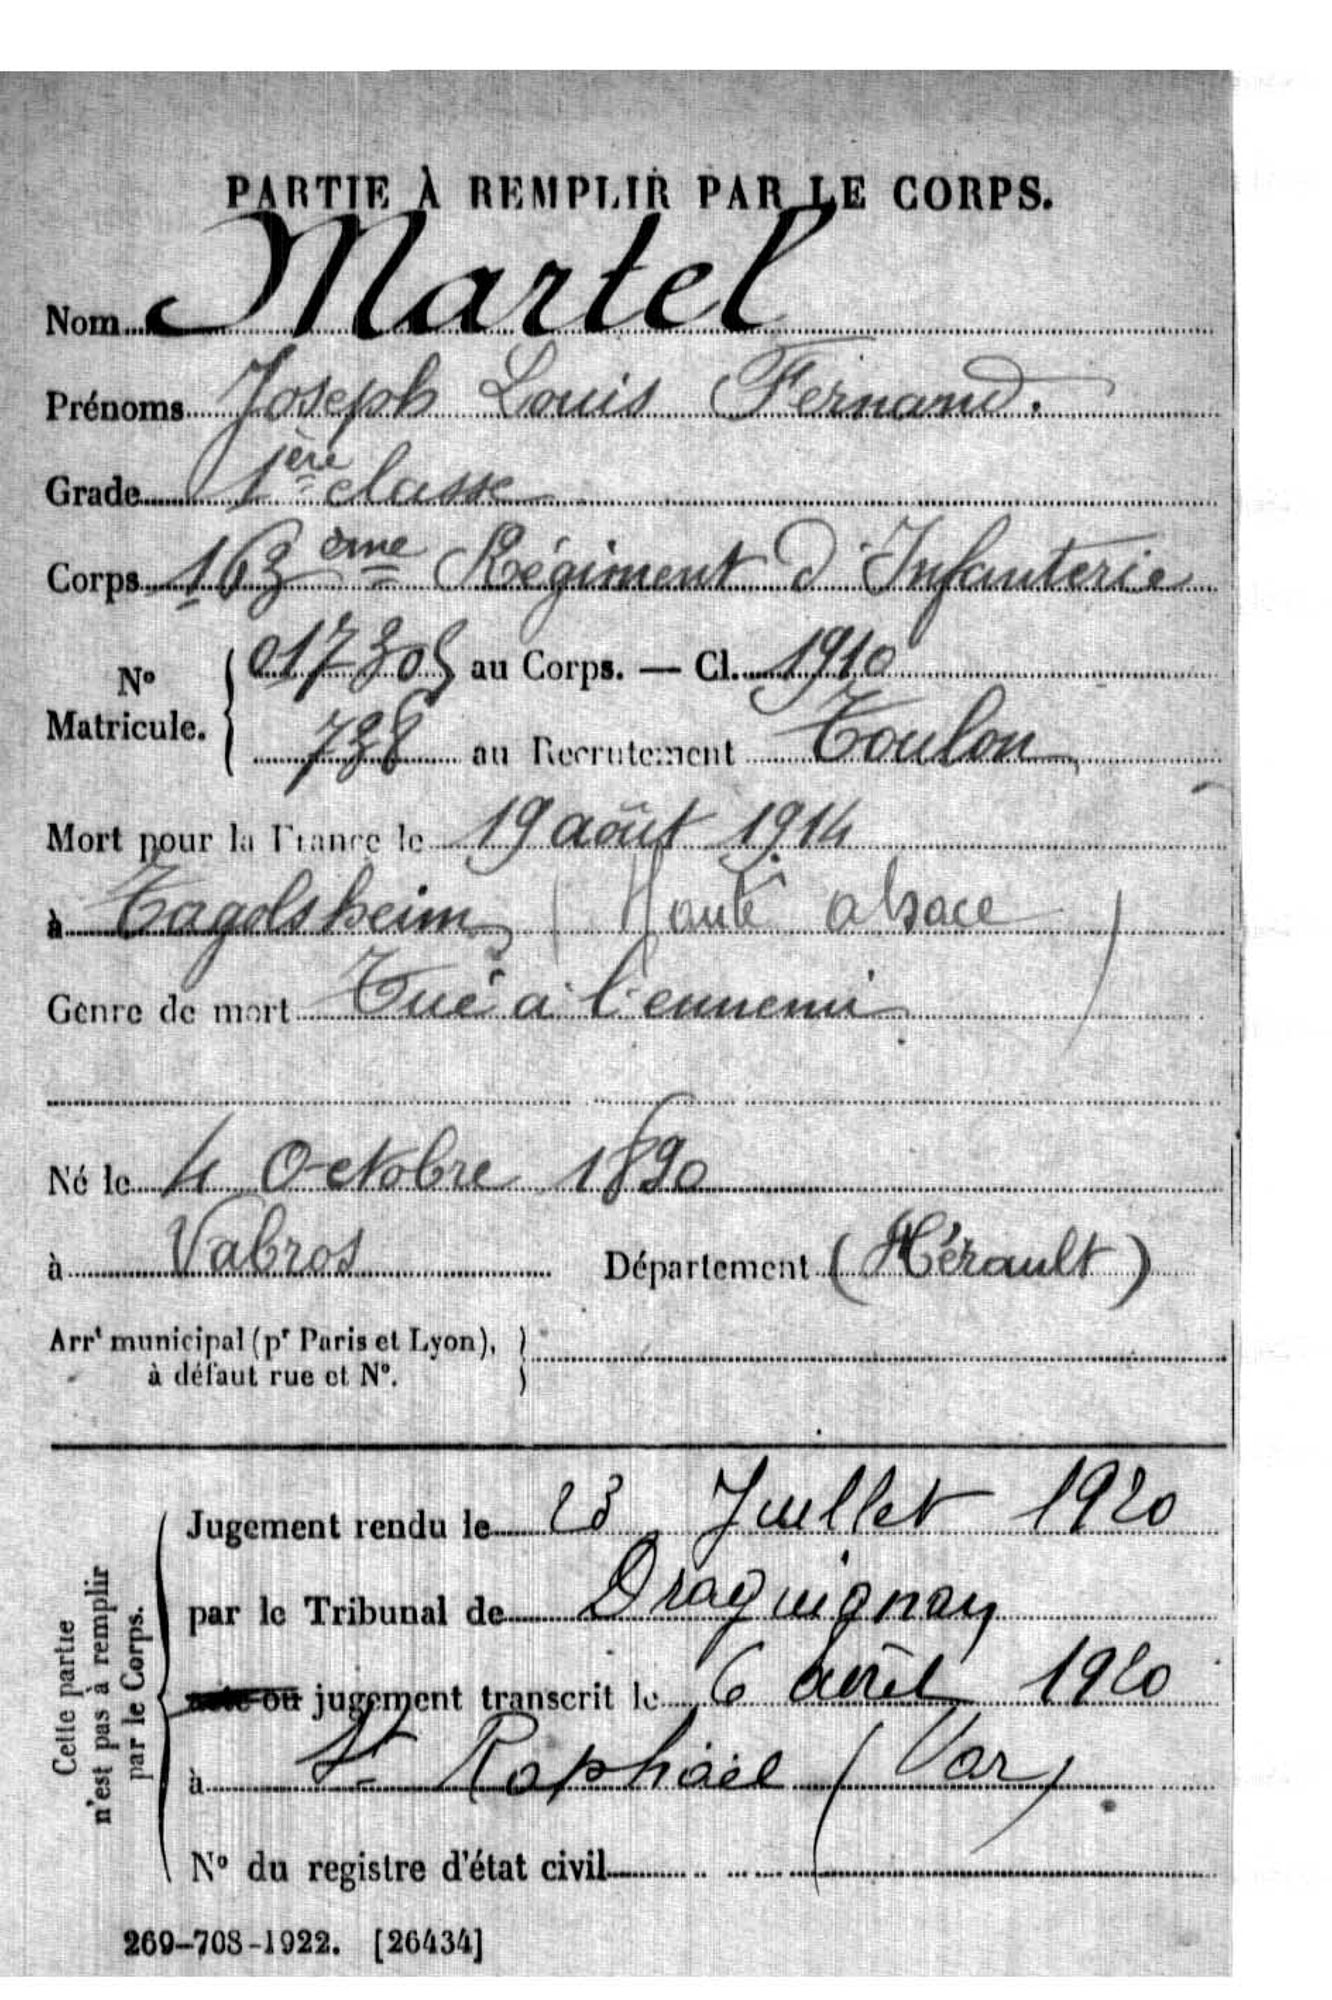 PARTIE À REMPLIR PAR LE CORPS.
Nom Martel
Prénoms Joseph Louis Fernand.
Grade 1ère classe
Corps 163ème Régiment d'Infanterie
N° Matricule. 017305 au Corps. — Cl. 1910
738 au Recrutement Toulon
Mort pour la France le 19 août 1914
à Tagolsheim (Haute alsace)
Genre de mort Tué à l'ennemi
Né le 4 Octobre 1890
à Vabros Département (Hérault)
Arrt municipal (pr Paris et Lyon),
à défaut rue et N°.
Cette partie
n'est pas à remplir
par le Corps.
Jugement rendu le 23 Juillet 1920
par le Tribunal de Draguignan
acte ou jugement transcrit le 6 avril 1920
à St Raphaël (Var)
N° du registre d'état civil
269-708-1922. [26434]